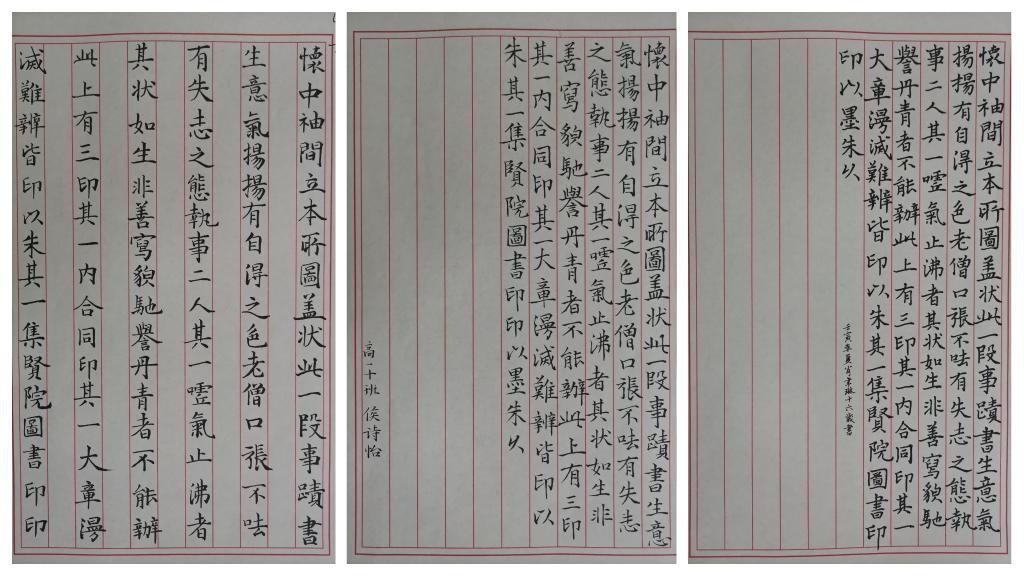 懷中袖間立本所圖盖狀此一段事蹟書
生意氣揚揚有自得之色老僧口張不呿
有失志之態執事二人其一嘘氣止沸者
其狀如生非善寫貌馳譽丹青者不能辦
此上有三印其一内合同印其一大章漫
滅難辨皆印以朱其一集賢院圖書印印
懷中袖間立本所圖盖狀此一段事蹟書生意
氣揚揚有自得之色老僧口張不呿有失志
之態執事二人其一嘘氣止沸者其狀如生非
善寫貌馳譽丹青者不能辦此上有三印
其一内合同印其一大章漫滅難辨皆印以
朱其一集賢院圖書印印以墨朱久
高一十班 侯诗怡
懷中袖間立本所圖盖狀此一段事蹟書生意氣
揚揚有自得之色老僧口張不呿有失志之態執
事二人其一嘘氣止沸者其狀如生非善寫貌馳
譽丹青者不能辦此上有三印其一内合同印其一
大章漫滅難辨皆印以朱其一集賢院圖書印
印以墨朱久
壬寅年夏肖琳十六歲書